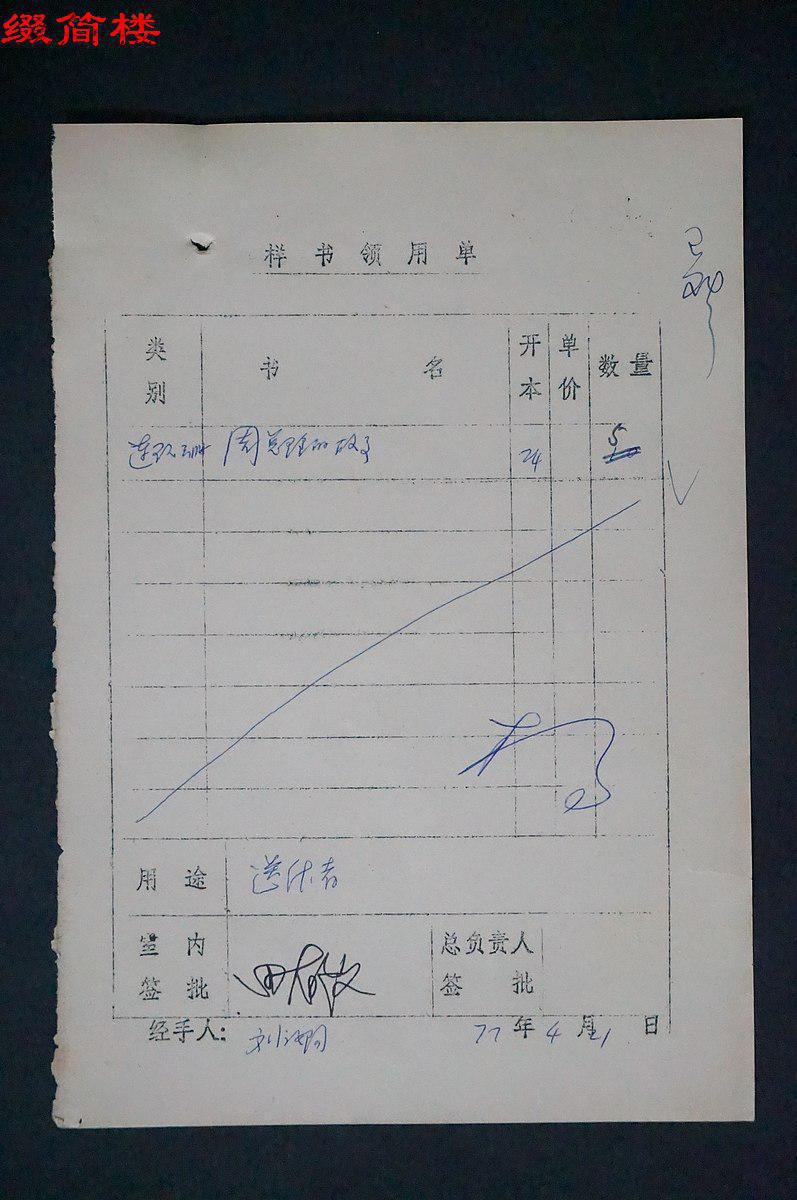 缀简楼
样书领用单
类别 书名 开本 单价 数量
连环画 周总理的故事 24 5
用途 送作者
室内签批 总负责人签批
经手人: 77年4月21日